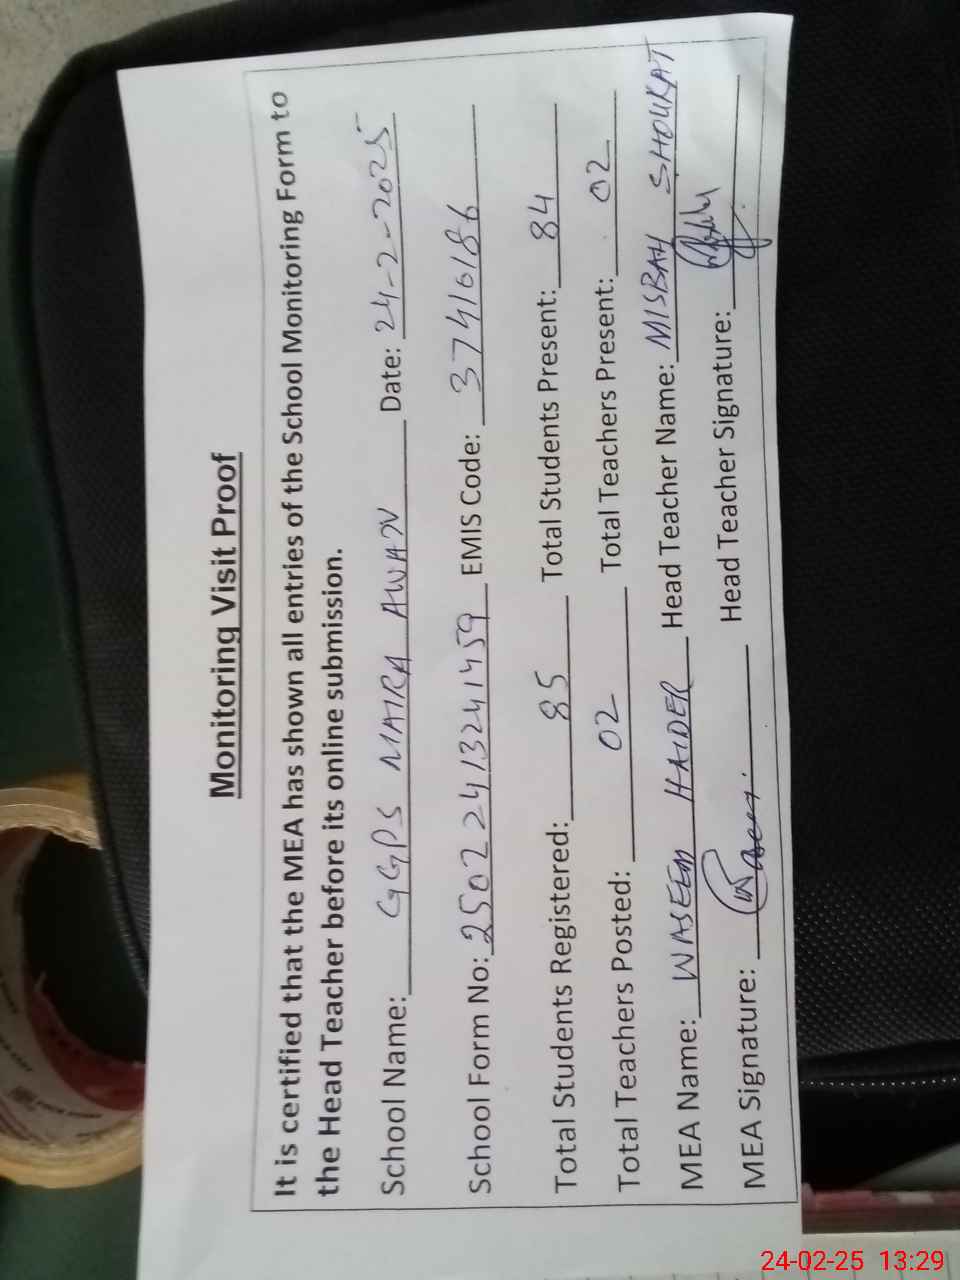 Monitoring Visit Proof
It is certified that the MEA has shown all entries of the School Monitoring Form to
the Head Teacher before its online submission.
School Name: GGPS MAIRA AWAN Date: 24-2-2025
School Form No: 25022413241459 EMIS Code: 37410186
Total Students Registered: 85 Total Students Present: 84
Total Teachers Posted: 02 Total Teachers Present: 02
MEA Name: WASEEM HAIDER Head Teacher Name: MISBAH SHOUKAT
MEA Signature: Waseem. Head Teacher Signature:
24-02-25 13:29